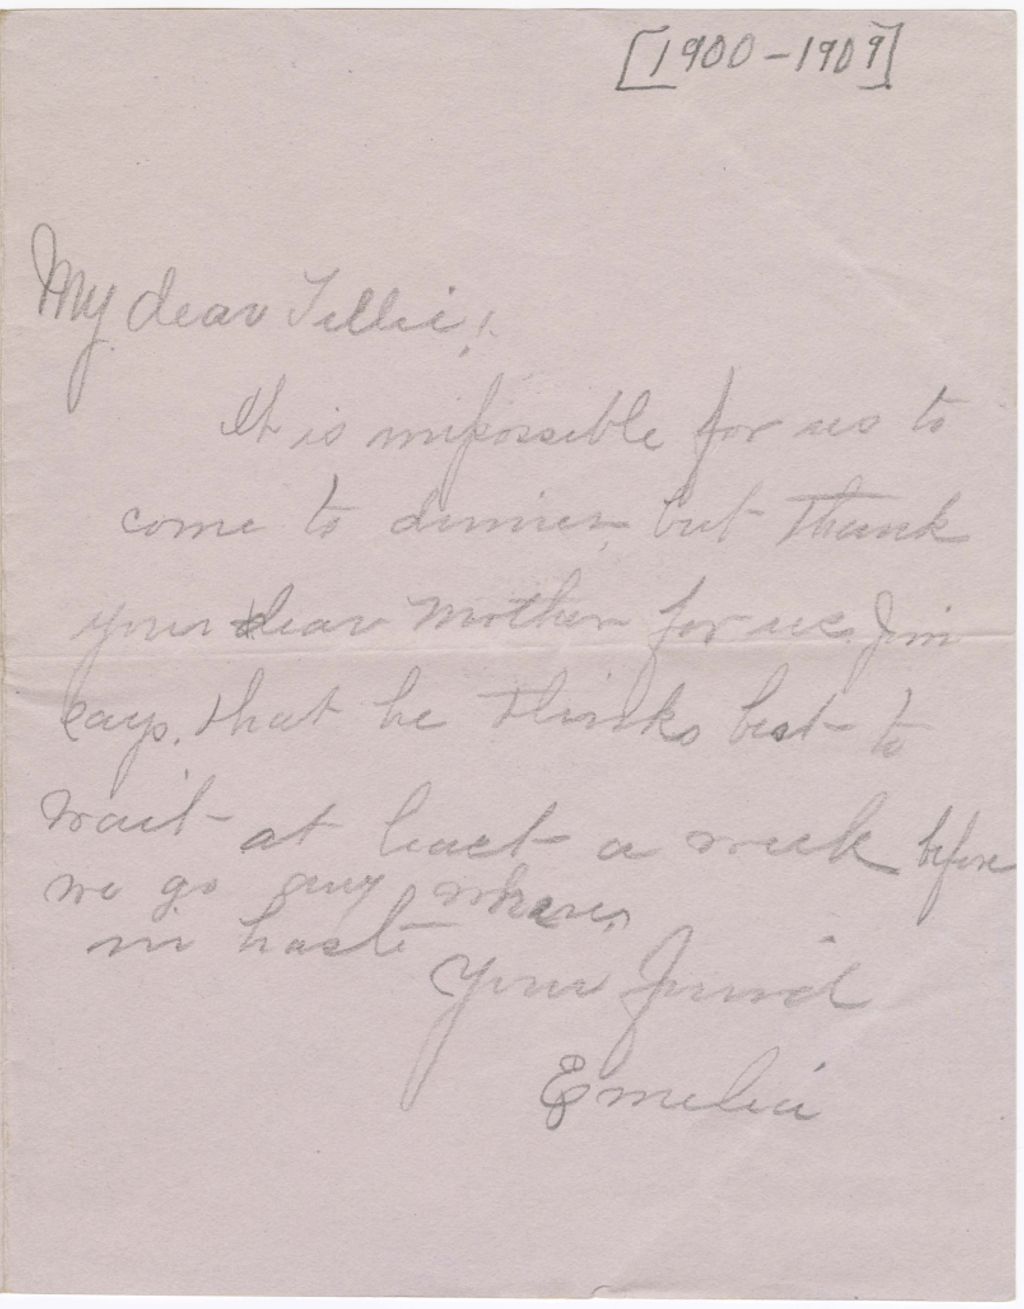 [1900-1909]
My dear Tillie!
It is impossible for us to
come to dinner, but thank
your dear Mother for us. Jim
says, that he thinks best to
wait at least a week before
we go any where,
in haste
Your friend
Emelie